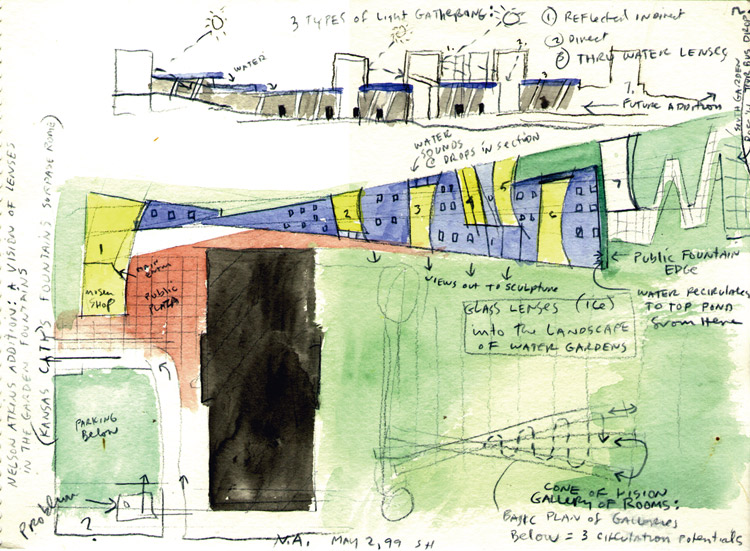 3 TYPES of Light GATHERING:
① REFLECTED INDIRECT
② Direct
③ THRU WATER LENSES
WATER
1.
2.
3
7.
FUTURE ADDITION
SOUTH GARDEN
BUS DROP
WATER
SOUNDS
@ DROPS IN SECTION
NELSON ATKINS ADDITION: A VISION OF LENSES
IN THE GARDEN FOUNTAINS
(KANSAS CITY'S FOUNTAINS SURPASS ROME)
1
2
3
4
5
6
7
MUSEUM
SHOP
MAIN
ENTRY
PUBLIC
PLAZA
VIEWS OUT TO SCULPTURE
PUBLIC FOUNTAIN
EDGE
WATER RECIRCULATES
TO TOP POND
from Here
GLASS LENSES (ICE)
into the LANDSCAPE
OF WATER GARDENS
PARKING
Below
Problem
?
CONE OF VISION
GALLERY OF ROOMS:
BASIC PLAN OF GALLERIES
Below = 3 circulation potentials
N.A. MAY 2, 99 SH